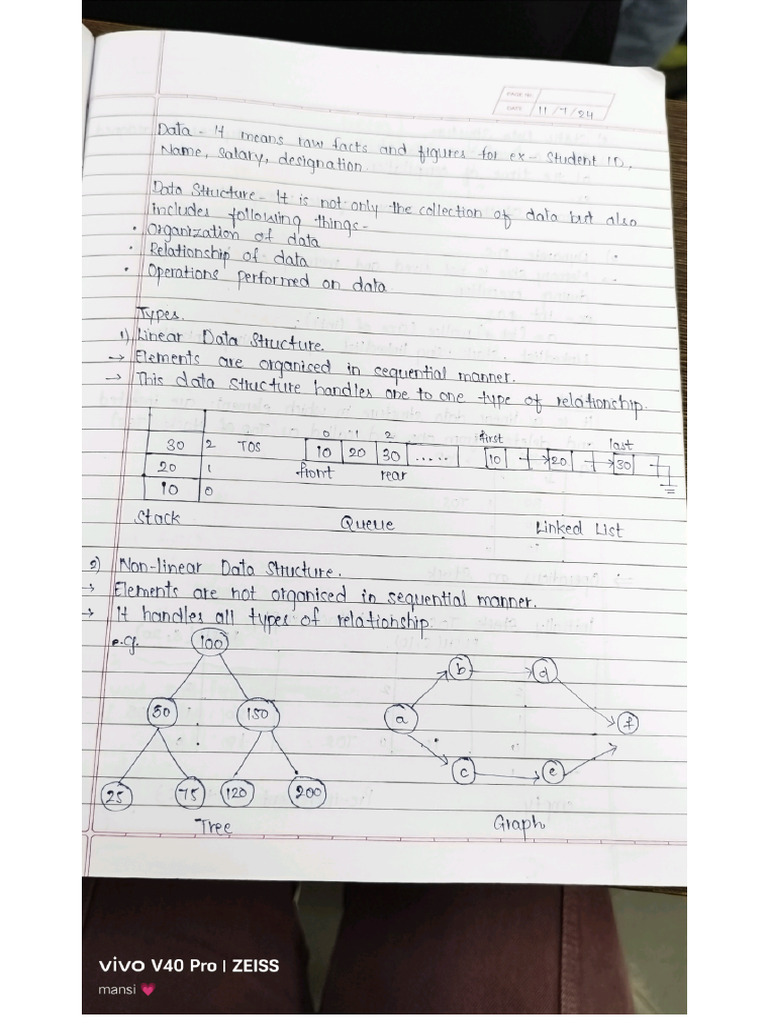 PAGE NO.
DATE 11/7/24
Data - It means raw facts and figures for ex- Student ID,
Name, Salary, designation.
Data Structure - It is not only the collection of data but also
includes following things-
• Organization of data
• Relationship of data
• Operations performed on data
Types.
1) Linear Data Structure.
→ Elements are organised in sequential manner.
→ This data structure handles one to one type of relationship.
30 2 TOS
20 1
10 0
Stack
0 1 2
10 20 30 .....
front rear
Queue
first last
10 20 30
Linked List
2) Non-linear Data Structure.
→ Elements are not organised in sequential manner.
→ It handles all types of relationship
e.g.
100
50 150
25 75 120 200
Tree
b d
a f
c e
Graph
vivo V40 Pro | ZEISS
mansi 💗